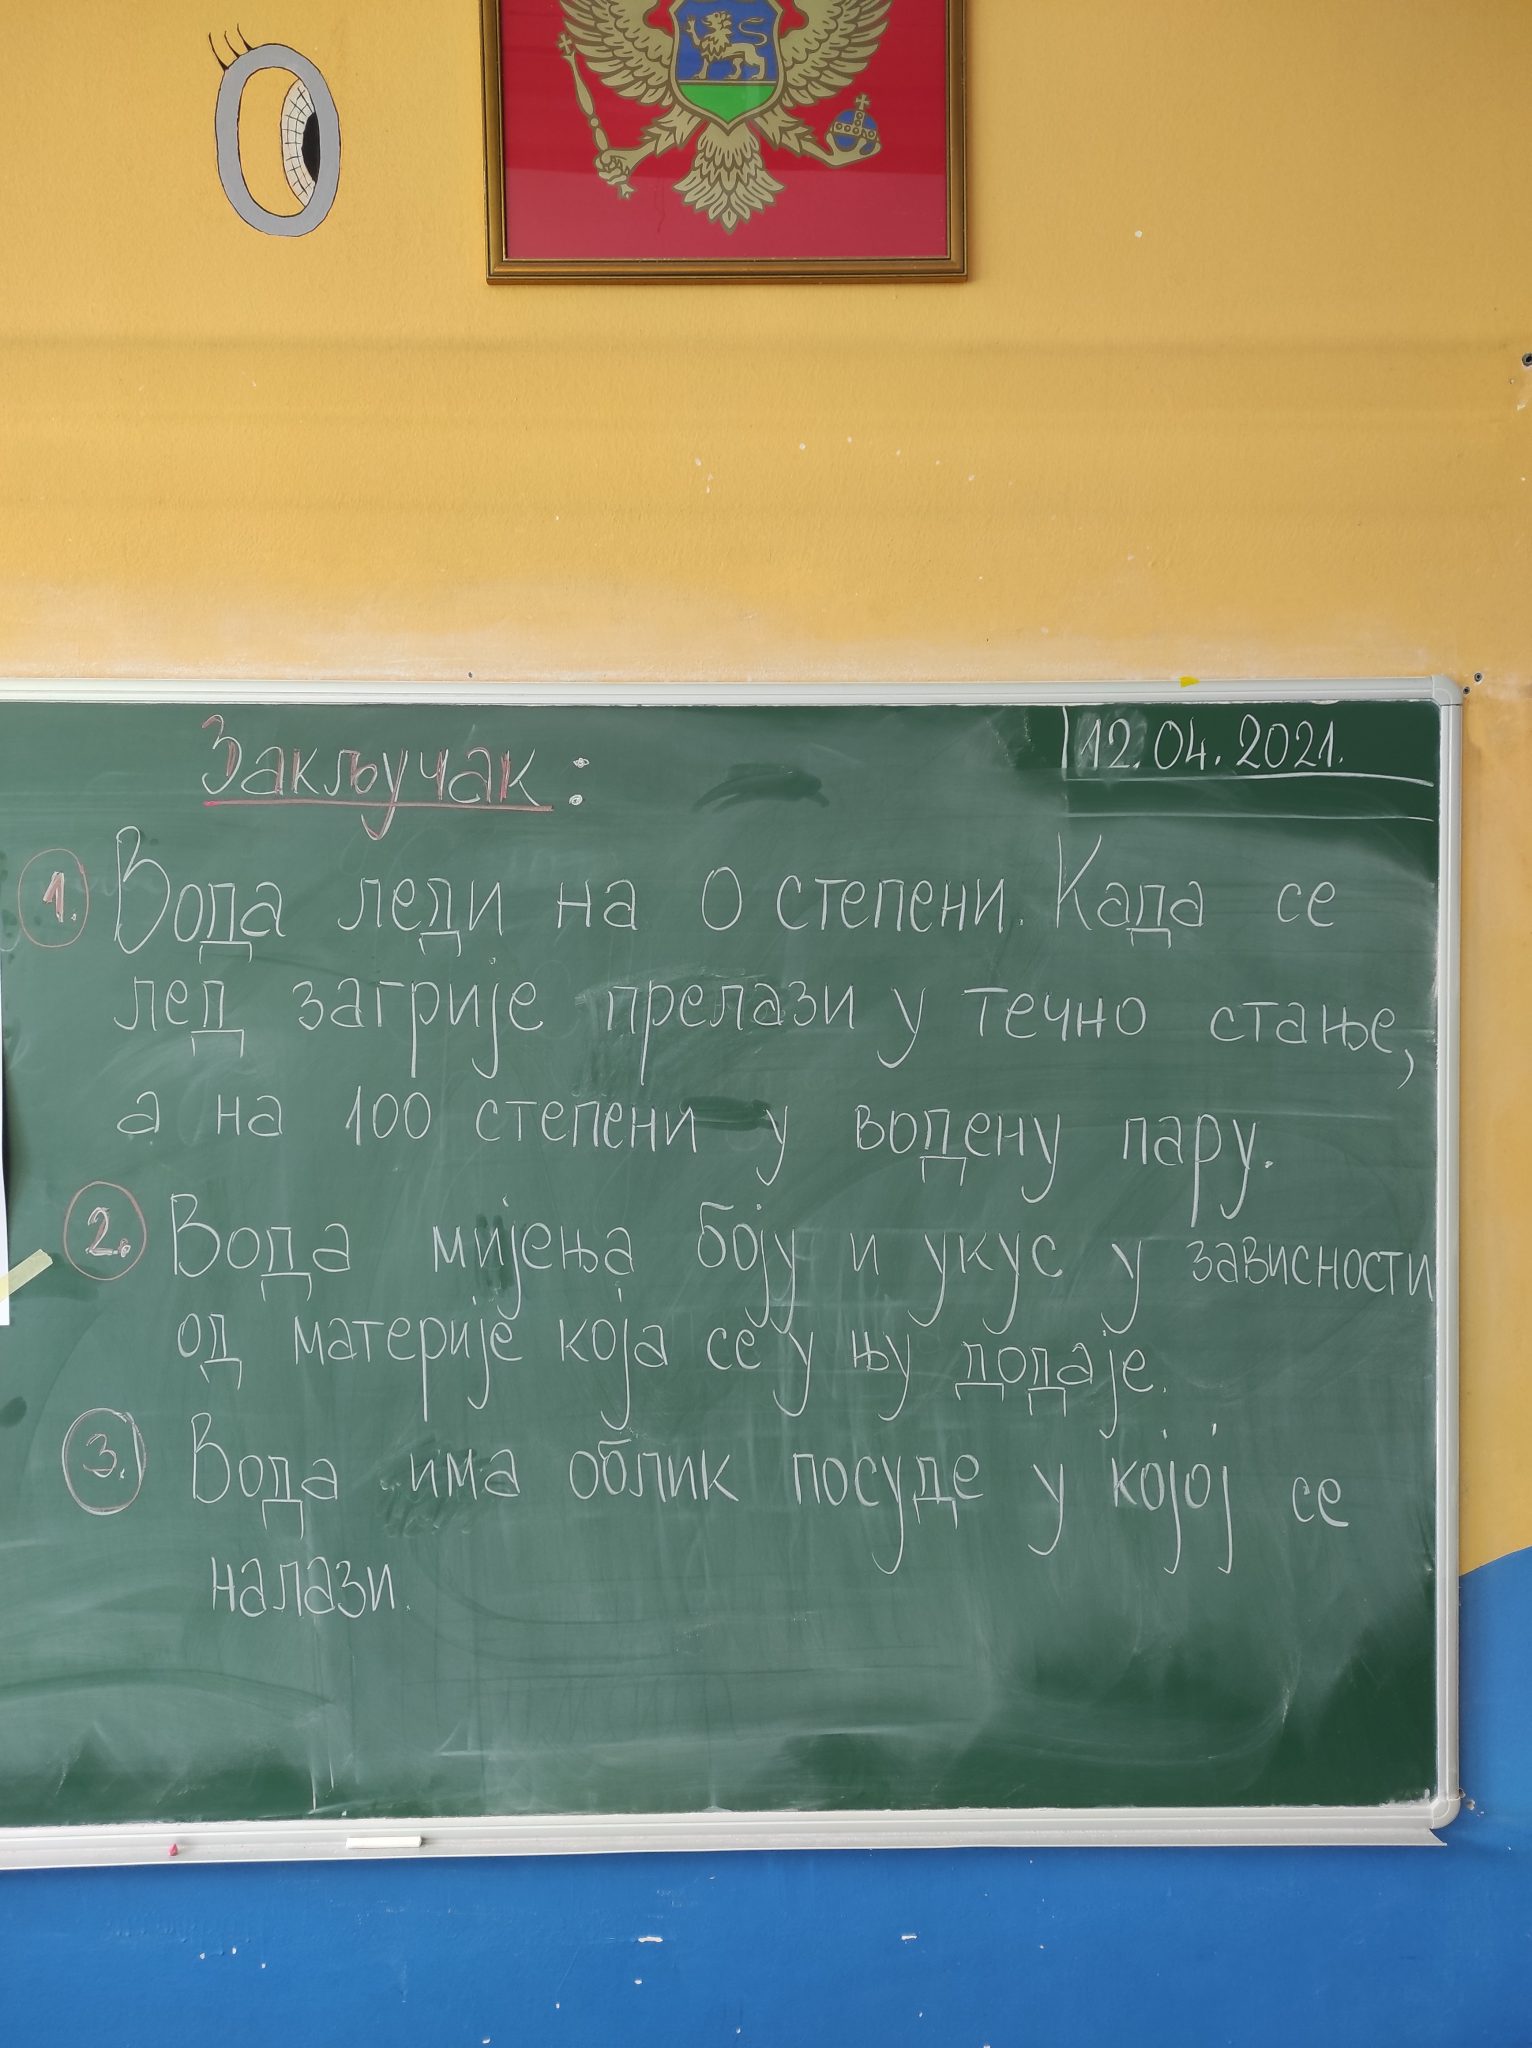 12.04.2021.
Закључак:
1. Вода леди на 0 степени. Када се
лед загрије прелази у течно стање,
а на 100 степени у водену пару.
2. Вода мијења боју и укус у зависности
од материје која се у њу додаје.
3. Вода има облик посуде у којој се
налази.